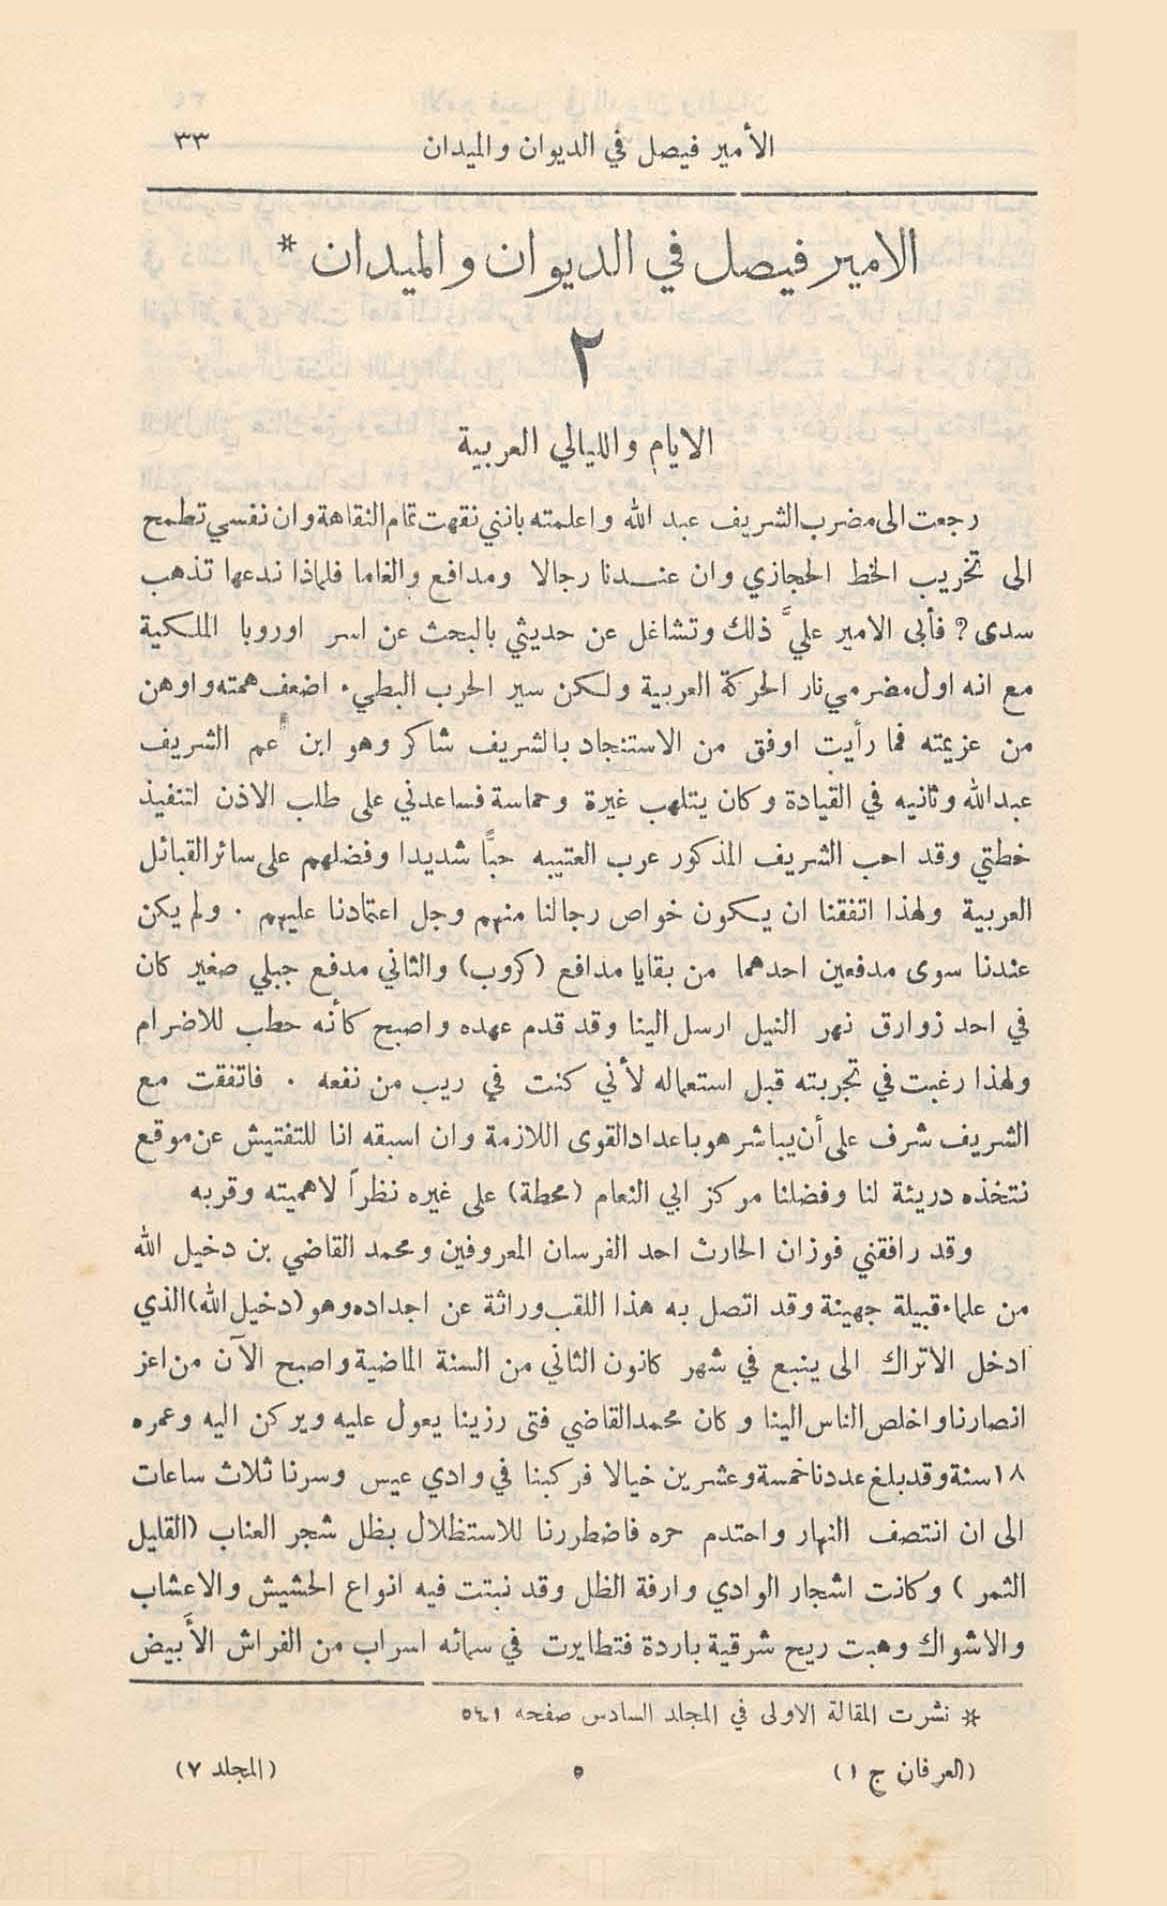 الأمير فيصل في الديوان والميدان ٣٣
الامير فيصل في الديوان والميدان *
٢
الايام والليالي العربية
رجعت الى مضرب الشريف عبد الله واعلمته بانني نقهت تمام النقاهة وان نفسي تطمح
الى تخريب الخط الحجازي وان عندنا رجالا ومدافع والغاما فلماذا ندعها تذهب
سدى ؟ فأبى الامير عليَّ ذلك وتشاغل عن حديثي بالبحث عن اسر اوروبا الملكية
مع انه اول مضرمي نار الحركة العربية ولكن سير الحرب البطيء اضعف همته واوهن
من عزيمته فما رأيت اوفق من الاستنجاد بالشريف شاكر وهو ابن عم الشريف
عبد الله وثانيه في القيادة وكان يتلهب غيرة وحماسة فساعدني على طلب الاذن لتنفيذ
خطتي وقد احب الشريف المذكور عرب العتيبه حبًّا شديدا وفضلهم على سائر القبائل
العربية ولهذا اتفقنا ان يكون خواص رجالنا منهم وجل اعتمادنا عليهم . ولم يكن
عندنا سوى مدفعين احدهما من بقايا مدافع (كروب) والثاني مدفع جبلي صغير كان
في احد زوارق نهر النيل ارسل الينا وقد قدم عهده واصبح كأنه حطب للاضرام
ولهذا رغبت في تجربته قبل استعماله لأني كنت في ريب من نفعه . فاتفقت مع
الشريف شرف على أن يباشر هو باعداد القوى اللازمة وان اسبقه انا للتفتيش عن موقع
نتخذه دريئة لنا وفضلنا مركز ابي النعام (محطة) على غيره نظراً لاهميته وقربه
وقد رافقني فوزان الحارث احد الفرسان المعروفين ومحمد القاضي بن دخيل الله
من علماء قبيلة جهينة وقد اتصل به هذا اللقب وراثة عن اجداده وهو (دخيل الله) الذي
ادخل الاتراك الى ينبع في شهر كانون الثاني من السنة الماضية واصبح الآن من اعز
انصارنا واخلص الناس الينا وكان محمد القاضي فتى رزينا يعول عليه ويركن اليه وعمره
١٨ سنة وقد بلغ عددنا خمسة وعشرين خيالا فركبنا في وادي عيس وسرنا ثلاث ساعات
الى ان انتصف النهار واحتدم حره فاضطررنا للاستظلال بظل شجر العناب (القليل
الثمر ) وكانت اشجار الوادي وارفة الظل وقد نبتت فيه انواع الحشيش والاعشاب
والاشواك وهبت ريح شرقية باردة فتطايرت في سمائه اسراب من الفراش الأَبيض
* نشرت المقالة الاولى في المجلد السادس صفحه ٥٤١
(العرفان ج ١) ٥ (المجلد ٧)